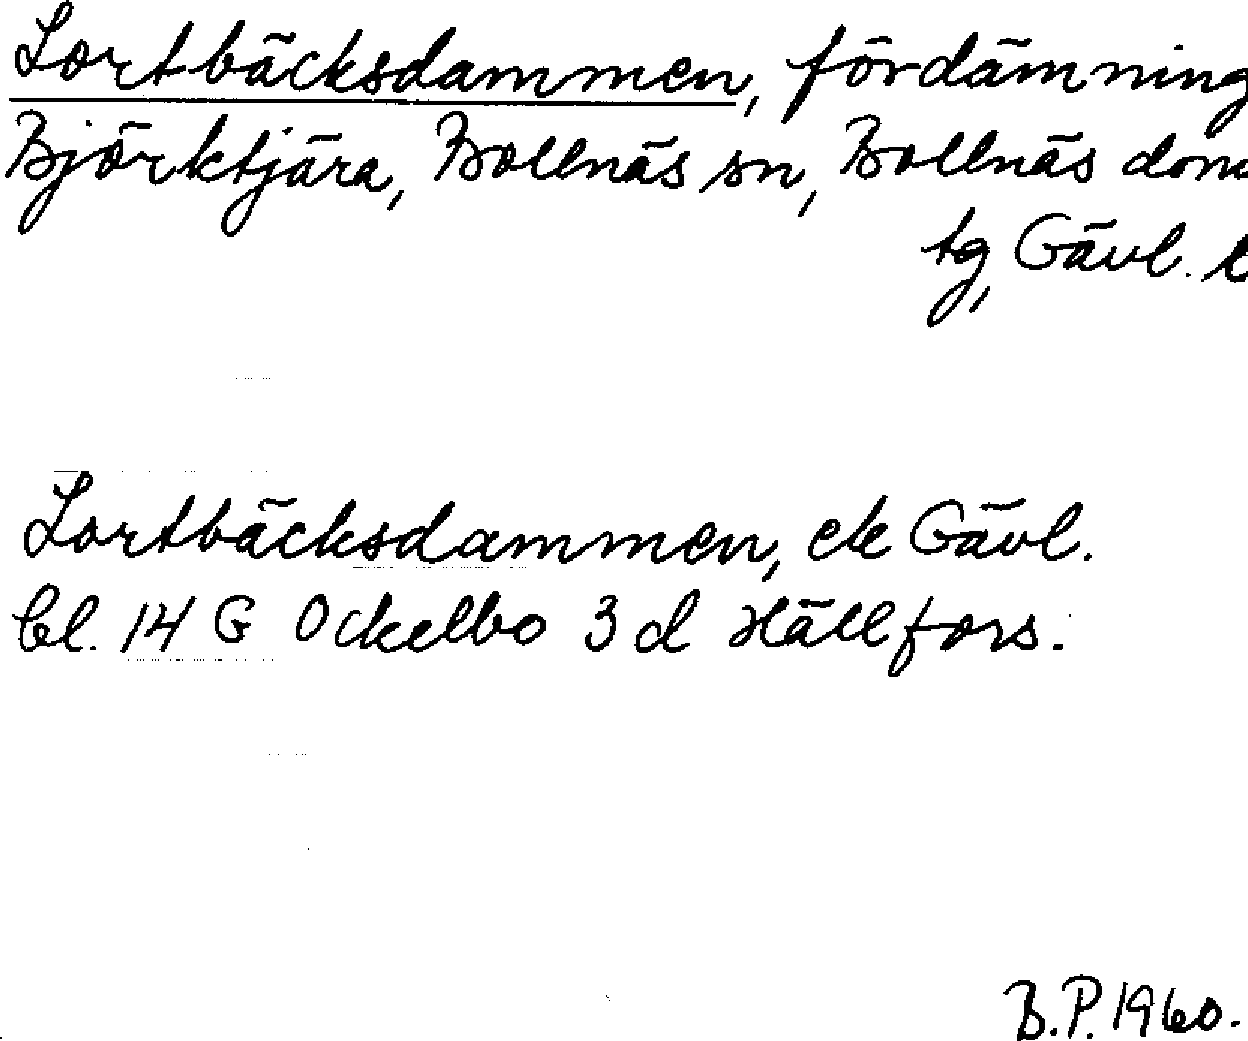 Lortbäcksdammen, fördämning
Björktjära, Bollnäs sn, Bollnäs dom
tg, Gävl. l
Lortbäcksdammen, ek Gävl.
bl. 14 G Ockelbo 3 d Hällfors.
B.P. 1960.